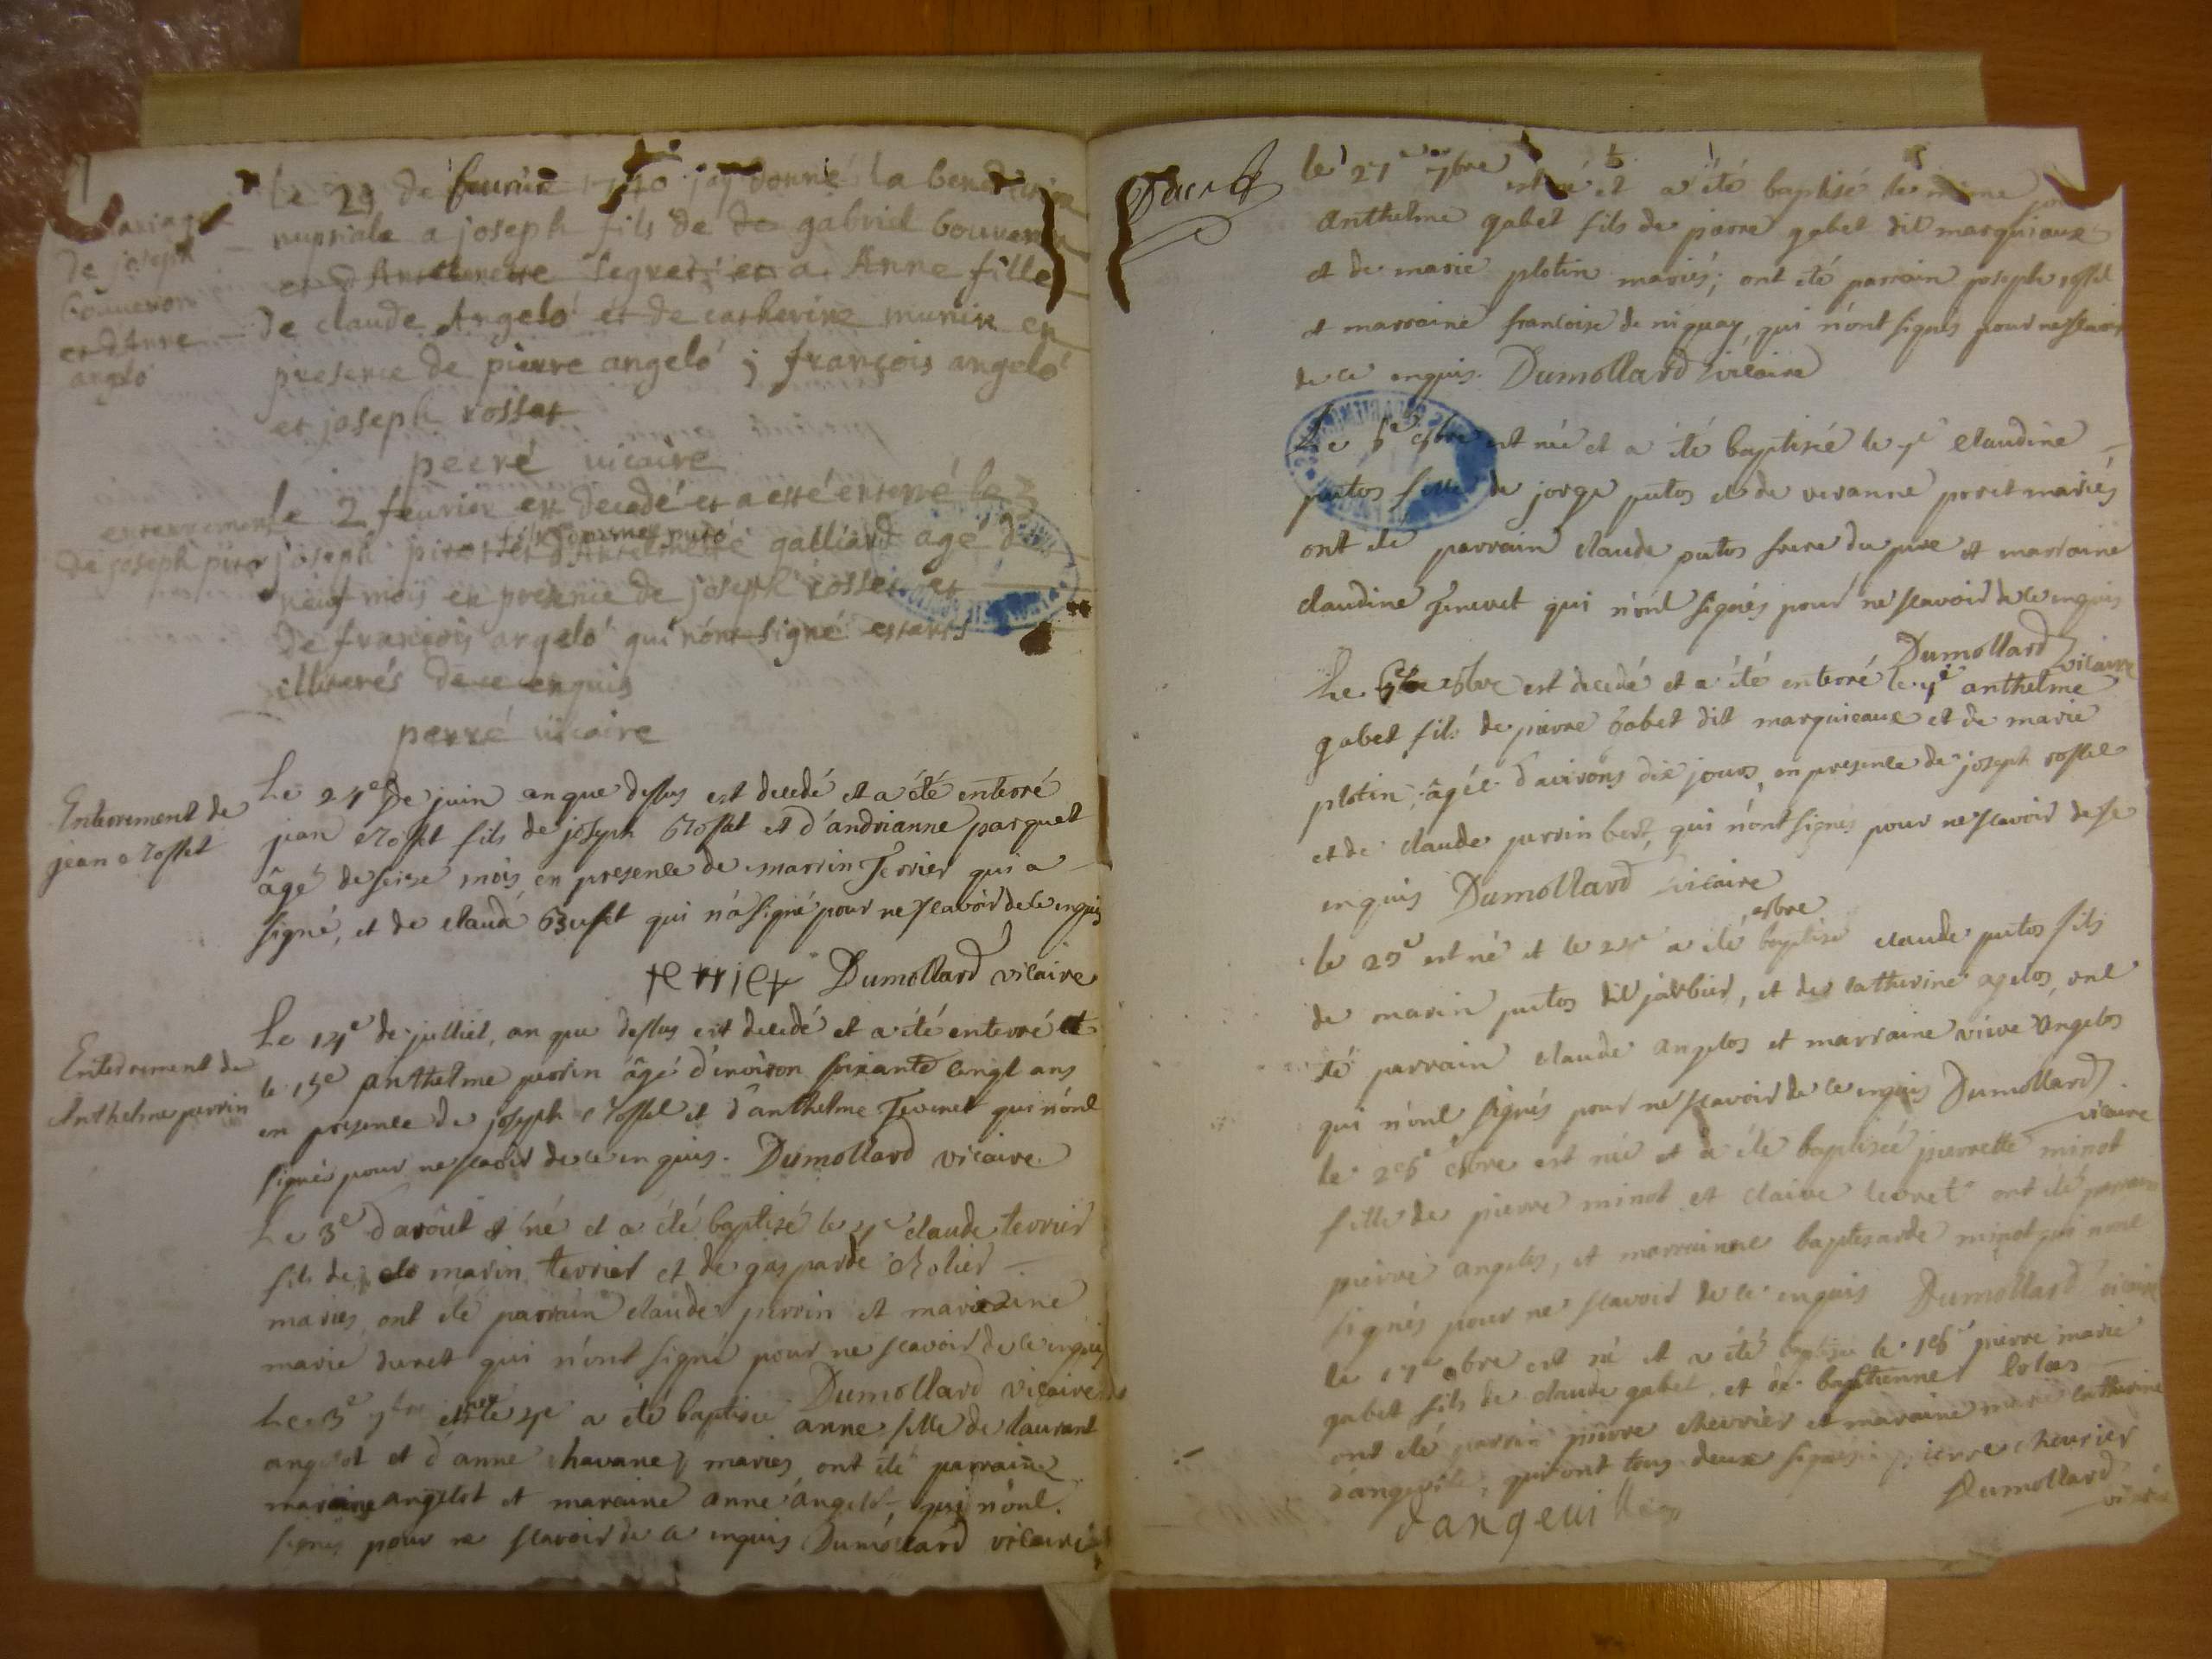 mariage
de joseph
bouueron
et d'Anne
angelo
Le 29 de feurier 1740 jay donné la benediction
nuptiale a joseph fils de de gabriel bouueron
et d'Anthelmette segret et a Anne fille
de claude Angelo et de catherine munin en
presence de pierre angelo ; françois angelo
et joseph rosset
perré uicaire
enterrement
de joseph piro
le 2 feurier est decedé et a esté enterré le 3
joseph galliard agé de
neuf mois en presence de joseph rosset et
de françois angelo qui n'ont signé estants
illiterés de ce enquis
perré uicaire
Enterrement de
jean rosset
Le 24e de juin an que dessus est decedé et a été enterré
jean rosset fils de joseph rosset et d'andrianne parquet
âgé de seize mois, en presence de marrin Terrier qui a
signé, et de claude Buset qui n'a signé pour ne scavoir de ce enquis
terrier Dumollard vicaire
Enterrement de
Anthelme perrin
Le 14e de julliet, an que dessus est decedé et a été enterré
le 15e anthelme perrin âgé d'environ soixante cinqt ans
en presence de joseph rosset et d'anthelme Tevenet qui n'ont
signés pour ne scavoir de ce enquis. Dumollard vicaire
Le 3e d'aoôut est né et a été baptisé le 4e claude terrier
fils de marin terrier et de gasparde
mariés, ont été parrain claude perrin et marraine
marie duret qui n'ont signé pour ne scavoir de ce enquis
Dumollard vicaire
Le 3e 7bre et le 4e a été baptisée anne fille de laurant
angelot et d'anne chavanes mariés, ont été parrain
angelot et maraine anne angelot, qui n'ont
signés pour ne scavoir de ce enquis Dumollard vicaire
le 27e 7bre est né et a été baptisé le même jour
anthelme gabet fils de pierre gabet dit marquieaux
et de marie plotin mariés; ont été parrain joseph rosset
et marraine francoise de niguay, qui n'ont signés pour ne scavoir
de ce enquis. Dumollard vicaire
Le 8bre est née et a été baptisée le claudine
putos fille de jorge putos et de veranne poret mariés
ont été parrain claude putos frere du pere et marraine
claudine Tenevet qui n'ont signés pour ne scavoir de ce enquis
Dumollard vicaire
Le 8bre est decedé et a été enterré le anthelme
gabet fils de pierre Gabet dit marquieaux et de marie
plotin, âgée d'avirons dix jours, en presence de joseph rosset
et de claude perrin bert, qui n'ont signés pour ne scavoir de se
enquis Dumollard vicaire
8bre
le 23e est né et le a été baptisé claude putos fils
de marin putos dit jarbier, et de catherine agelos, ont
été parrain claude angelos et marraine vieve angelos
qui n'ont signés pour ne scavoir de ce enquis Dumollard
vicaire
le 8bre est née et a été baptisée pierrette minot
fille de pierre minot et claire levret ont été parrain
pierre angelos, et marrainne baptesarde minot qui n'ont
signés pour ne scavoir de ce enquis Dumollard vicaire
le 17e est né et a été baptisé le pierre marie
gabet fils de claude gabet, et de bastienne colas
ont été parrin pierre chevrier et maraine catherine
d'angeville; qui ont tous deux signés pierre cheurier
Dumollard
vicaire
dangeuille